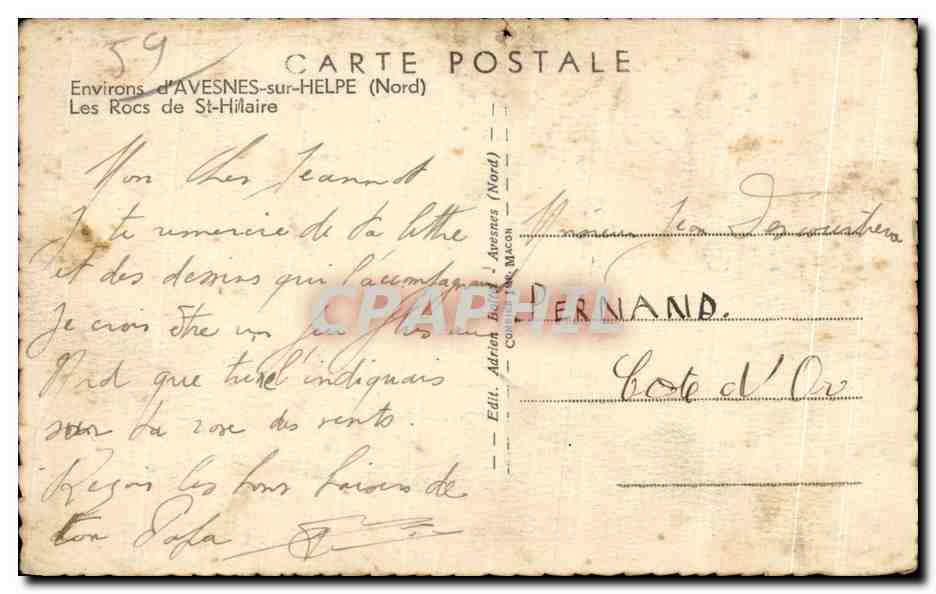 59
CARTE POSTALE
Environs d'AVESNES-sur-HELPE (Nord)
Les Rocs de St-Hilaire
Mon Cher Jeannot
Je te remercie de ta lettre
et des dessins qui l'accompagnaient
Je crois être un peu plus au
Nord que tu ne l'indiquais
sur ta rose des vents.
Reçois les bons baisers de
ton Papa
Edit. Adrien - Avesnes (Nord)
COMBIER IMP. MACON
Monsieur Jean
PERNAND.
Côte d'Or
CPAPHIL